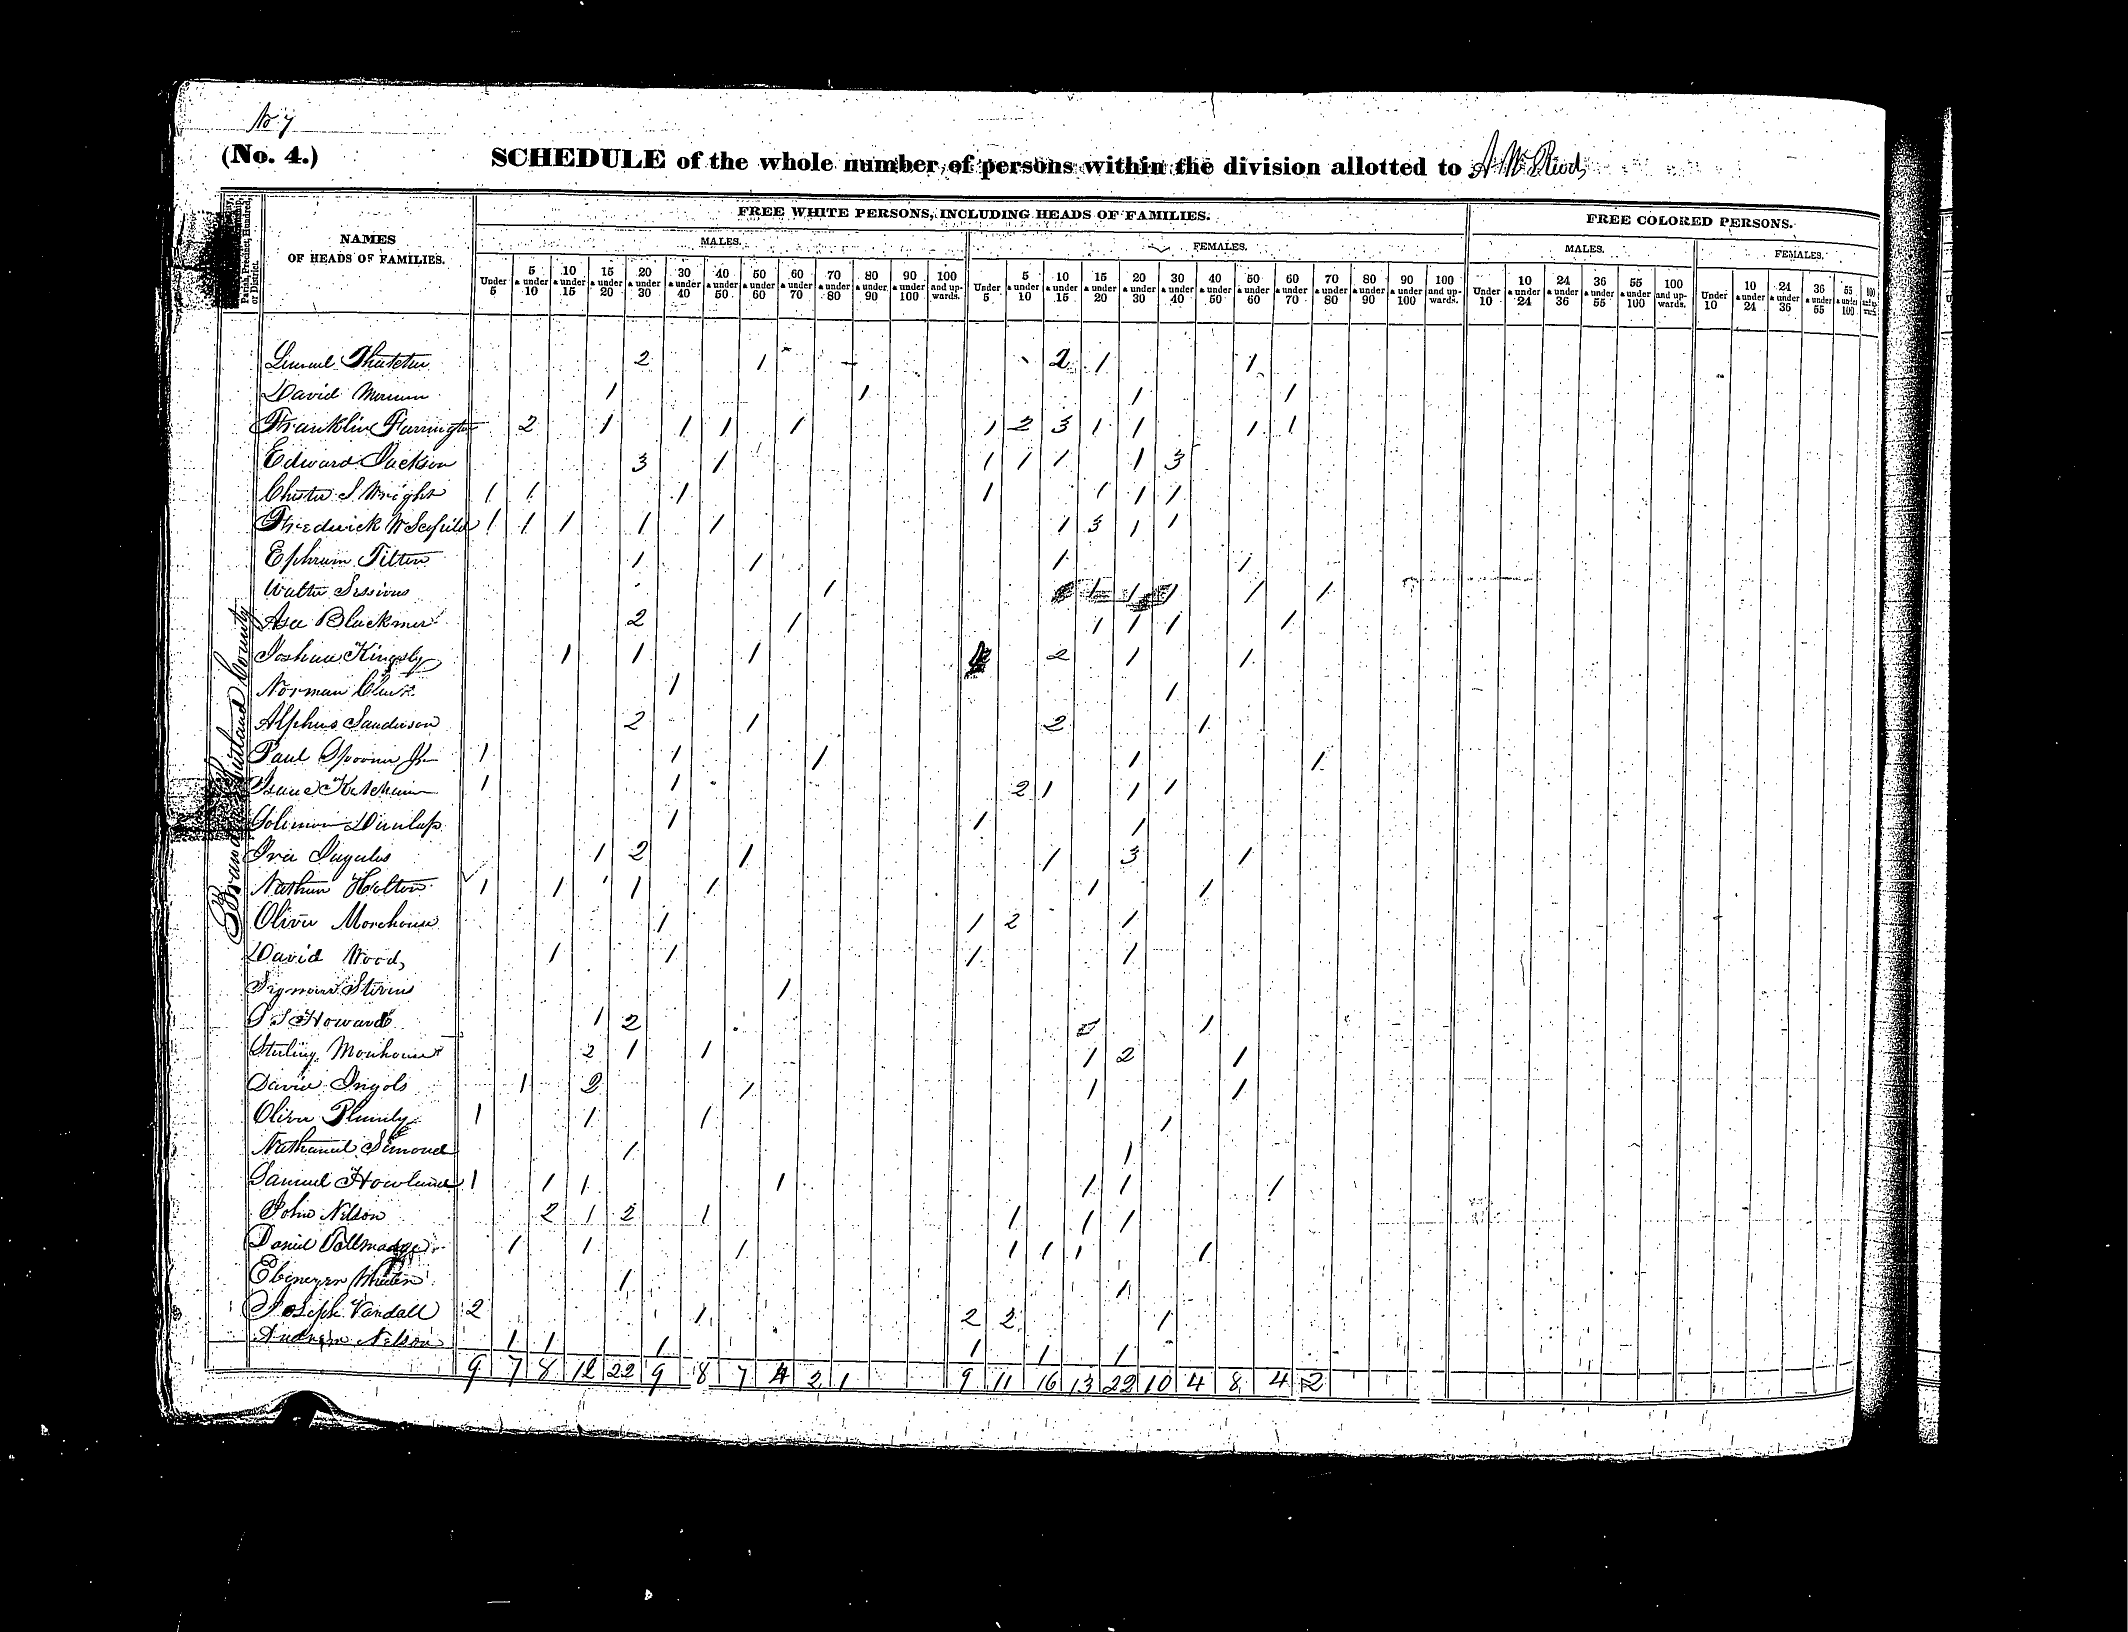 No 7
(No. 4.)
SCHEDULE of the whole number of persons within the division allotted to A
NAMES OF HEADS OF FAMILIES.
FREE WHITE PERSONS, INCLUDING HEADS OF FAMILIES.
FREE COLORED PERSONS.
MALES. FEMALES. MALES. FEMALES.
Under 5 5 & under 10 10 & under 15 15 & under 20 20 & under 30 30 & under 40 40 & under 50 50 & under 60 60 & under 70 70 & under 80 80 & under 90 90 & under 100 100 and upwards. Under 5 5 & under 10 10 & under 15 15 & under 20 20 & under 30 30 & under 40 40 & under 50 50 & under 60 60 & under 70 70 & under 80 80 & under 90 90 & under 100 100 and upwards. Under 10 10 & under 24 24 & under 36 36 & under 55 55 & under 100 100 and upwards. Under 10 10 & under 24 24 & under 36 36 & under 55 55 & under 100
County
Lemuel Thatcher 2 1 2 1 1
David 1 1 1 1
Franklin Farrington 2 1 1 1 1 1 2 3 1 1 1 1
Edward Jackson 3 1 1 1 1 1 3
Chester S Wright 1 1 1 1 1 1 1
Frederick W 1 1 1 1 1 1 3 1 1
Ephraim Tilton 1 1 1 1
Walter Sessions 1 1 1 1 1 1
Asa Blackmer 2 1 1 1 1 1
Joshua Kingsly 1 1 1 2 1 1
Norman Clark 1 1
Alpheus Sanderson 2 1 2 1
Paul Spooner Jr 1 1 1 1 1
Isaac Ketcham 1 1 2 1 1 1
Solimon Dunlap 1 1 1
Ira 1 2 1 1 3 1
Nathan Holton 1 1 1 1 1 1
Oliver Morehouse 1 1 2 1
David Wood 1 1 1 1
Stevens 1
Howard 1 2 1
Sterling Morehouse 2 1 1 1 2 1
David Ingols 1 2 1 1 1
Oliver 1 1 1 1
Nathaniel Simond 1 1
Samuel Howland 1 1 1 1 1 1 1
John Nelson 2 1 2 1 1 1 1
Daniel 1 1 1 1 1 1 1
1 1
Joseph Vandall 2 1 2 2 1
Nelson 1 1 1 1 1 1
9 7 8 12 22 9 8 7 4 2 1 9 11 16 13 22 10 4 8 4 2